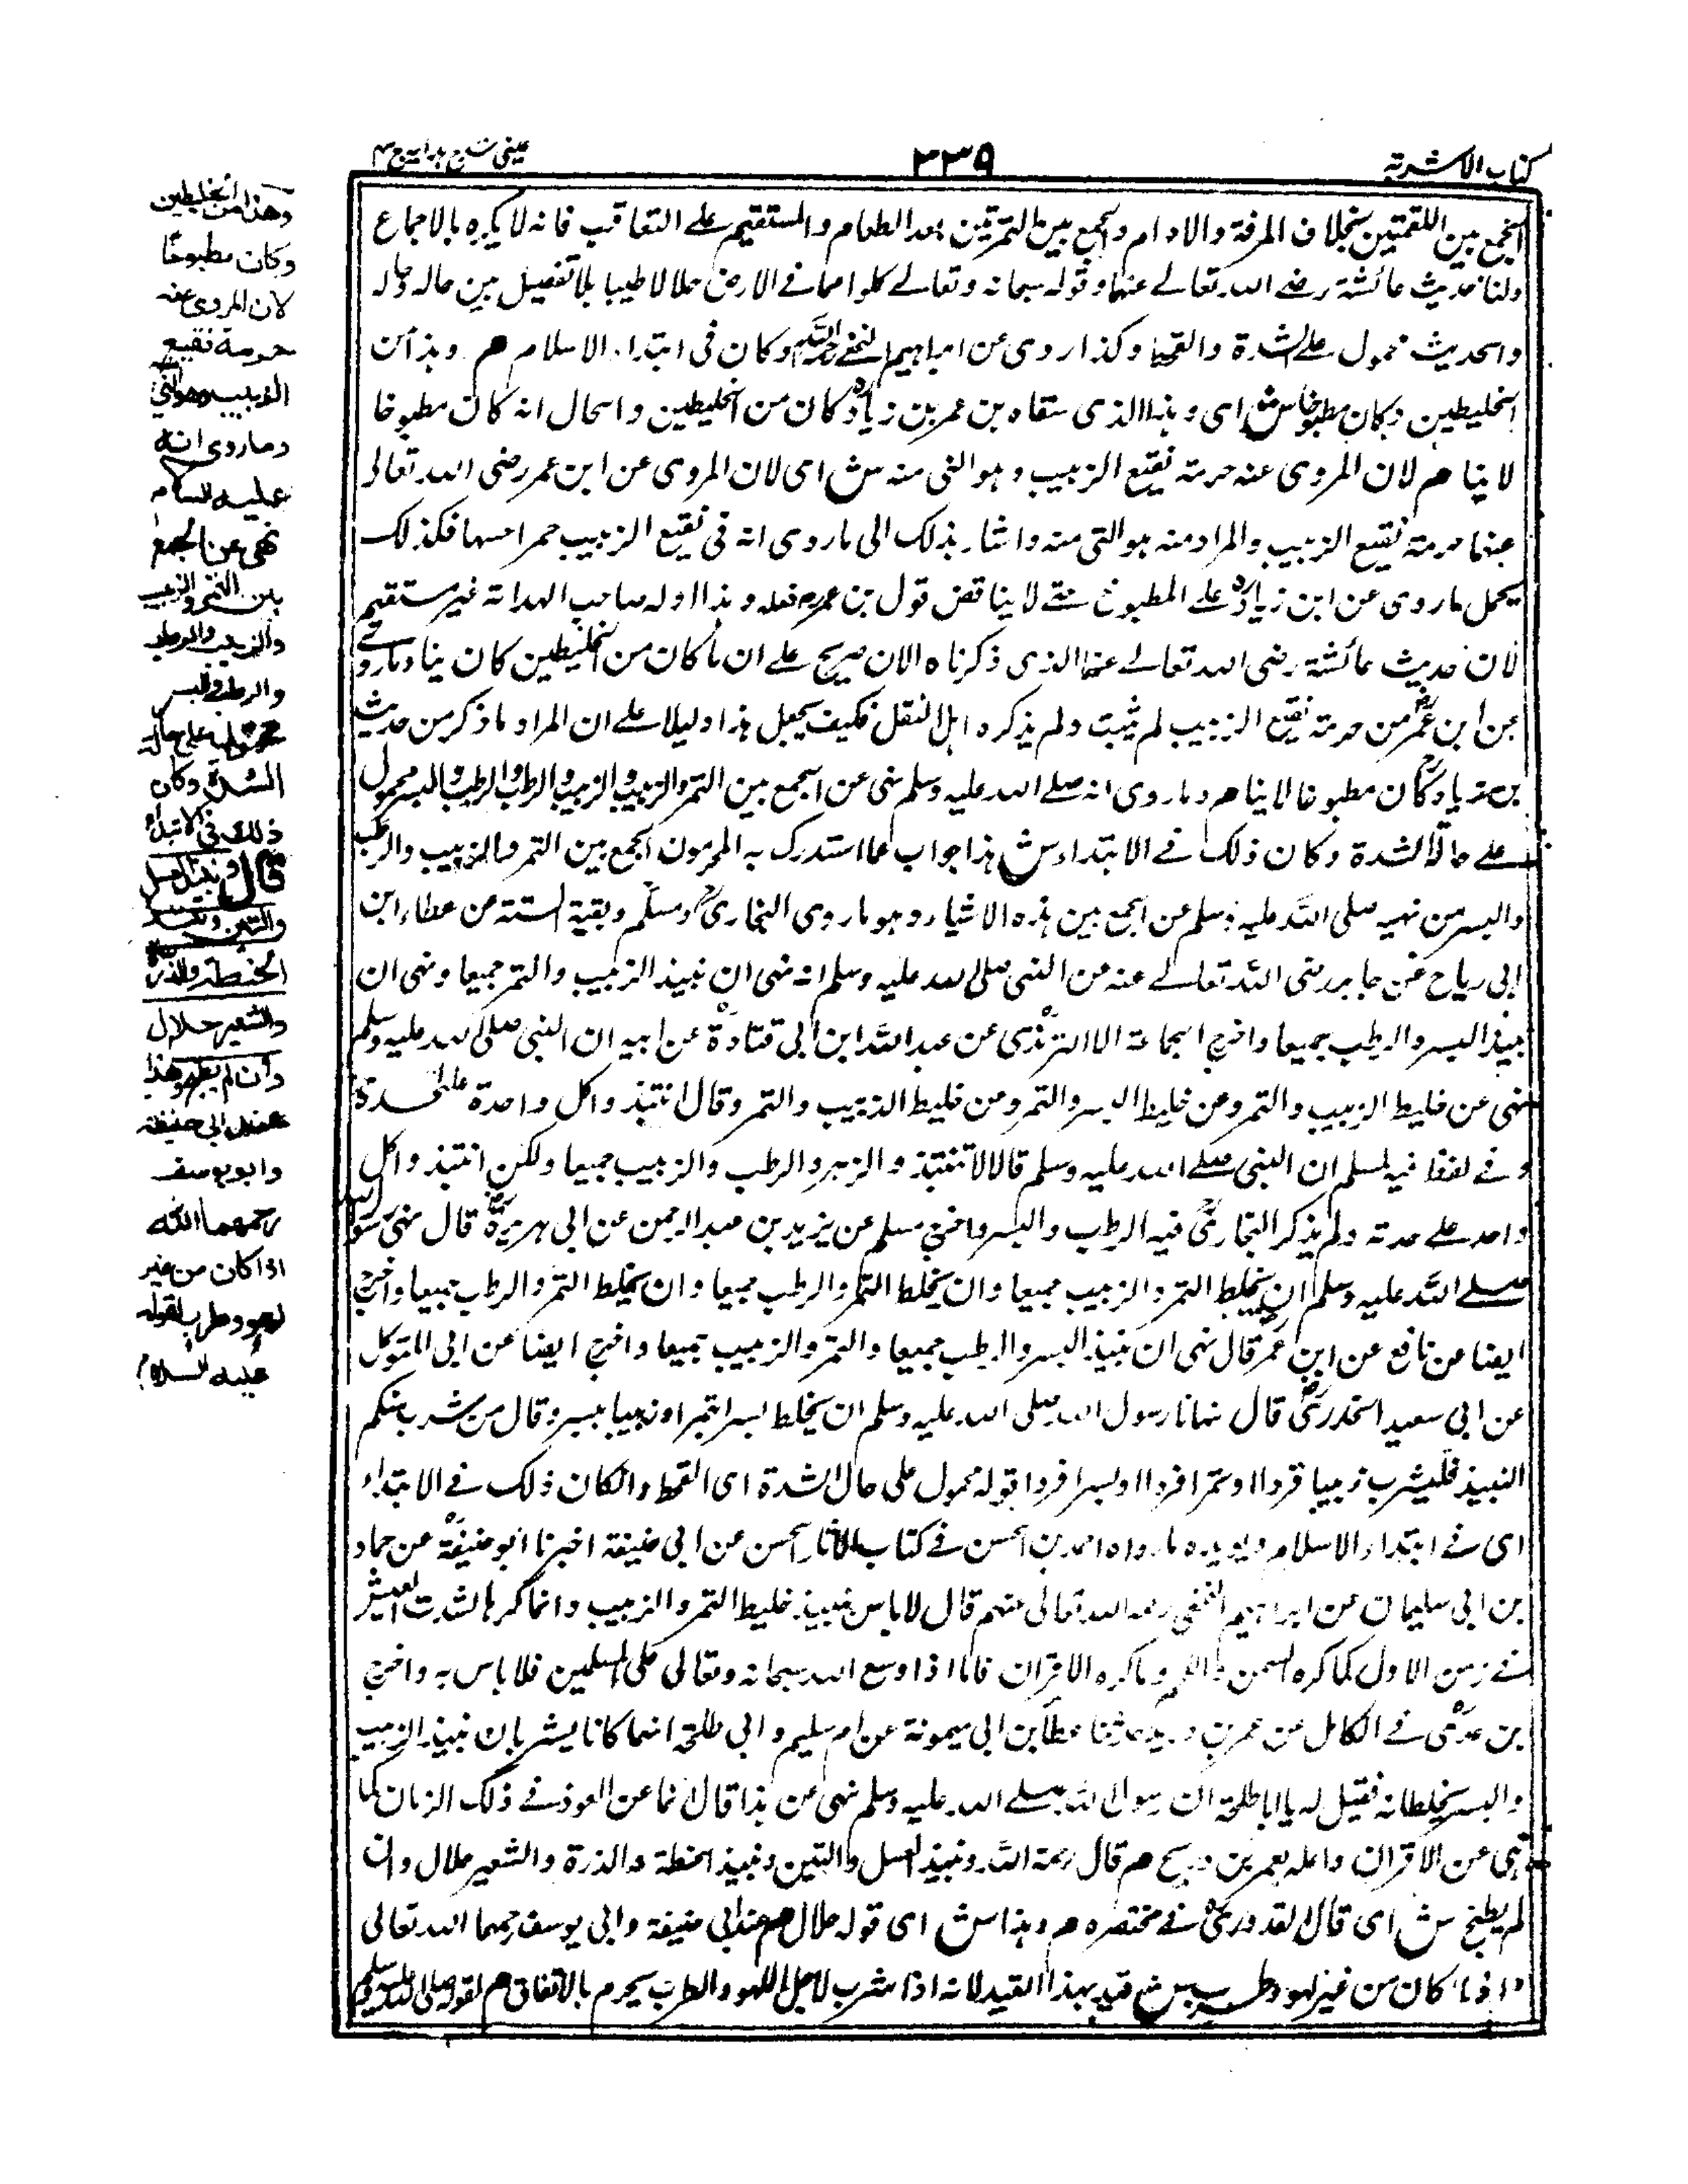 كتاب الاشربة
٣٣٩
عینی شرح ہدایہ ج ۴
الجمع بين اللقمتين بخلاف المرفة والادام والجمع بين التمرتين بعد الطعام والمستقيم على التعاقب فانه لا يكره بالاجماع
ولنا حديث عائشة رضى الله تعالى عنها وقوله سبحانه وتعالى كلوا مما فى الارض حلالا طيبا بلا تفصيل بين حاله وحاله
والحديث محمول على الشدة والقحط وكذا روى عن ابراهيم النخعى رحمه الله وكان فى ابتداء الاسلام هم وهذا من
الخليطين وكان مطبوخا ش اى وهذا الذى سقاه بن عمر بن زياد كان من الخليطين والحال انه كان مطبوخا
لا ينا م لان المروى عنه حرمة نقيع الزبيب وهو النى منه ش اى لان المروى عن ابن عمر رضى الله تعالى
عنهما حرمة نقيع الزبيب والمراد منه هو النى منه واشار بذلك الى ما روى انه فى نقيع الزبيب خمر فكذلك
يحمل ما روى عن ابن زياد على المطبوخ حتى لا يناقض قول بن عمر فعله وهذا اوله صاحب الهداية غير مستقيم
لان حديث عائشة رضى الله تعالى عنها الذى ذكرناه الان صريح على ان ما كان من الخليطين كان ينا وما روى
عن ابن عمر من حرمة نقيع الزبيب لم يثبت ولم يذكره اهل النقل فكيف يجعل هذا دليلا على ان المراد ما ذكر من حديث
بن زياد كان مطبوخا لا ينا م وما روى انه صلى الله عليه وسلم نهى عن الجمع بين التمر والزبيب والزبيب والرطب والرطب والبسر محمول
على حالة الشدة وكان ذلك فى الابتداء ش هذا جواب عما استدرك به المحرمون الجمع بين التمر والزبيب والرطب
والبسر من نهيه صلى الله عليه وسلم عن الجمع بين هذه الاشياء وهو ما روى البخارى ومسلم وبقية الستة عن عطاء ابن
ابى رباح عن جابر رضى الله تعالى عنه عن النبى صلى الله عليه وسلم انه نهى ان ينبذ الزبيب والتمر جميعا ونهى ان
ينبذ البسر والرطب جميعا واخرج الجماعة الا الترمذى عن عبد الله ابن ابى قتادة عن ابيه ان النبى صلى الله عليه وسلم
نهى عن خليط الزبيب والتمر وعن خليط البسر والتمر وعن خليط الزبيب والتمر وقال انتبذوا كل واحدة على حدة
وفى لفظ فيه لمسلم ان النبى صلى الله عليه وسلم قال لا تنتبذوا الزهو والرطب والزبيب جميعا ولكن انتبذوا كل
واحد على حدته ولم يذكر البخارى فيه الرطب والبسر واخرج مسلم عن يزيد بن عبد الرحمن عن ابى هريرة قال نهى رسول الله
صلى الله عليه وسلم ان يخلط التمر والزبيب جميعا وان يخلط التمر والرطب جميعا وان يخلط التمر والرطب جميعا واخرج
ايضا عن نافع عن ابن عمر قال نهى ان ينبذ البسر والرطب جميعا والتمر والزبيب جميعا واخرج ايضا عن ابى المتوكل
عن ابى سعيد الخدرى قال نهانا رسول الله صلى الله عليه وسلم ان يخلط بسرا بتمر او زبيبا ببسر وقال من شرب منكم
النبيذ فليشرب زبيبا فردا او تمرا فردا او بسرا فردا قوله محمول على حال الشدة اى القحط وانكان ذلك فى الابتداء
اى فى ابتداء الاسلام ويؤيده ما رواه احمد بن الحسن فى كتاب الآثار الحسن عن ابى حنيفة اخبرنا ابو حنيفة عن حماد
بن ابى سليمان عن ابراهيم النخعى رحمه الله تعالى عنهم قال لا باس بنبيذ خليط التمر والزبيب وانما كرها لشدت العيش
فى زمن الاول كما كره السمن واللحم وما كره الاقران فاما اذا وسع الله سبحانه وتعالى على المسلمين فلا باس به واخرج
بن عدى فى الكامل عن عمر بن حدثنا عطا بن ابى ميمونة عن ام سليم وابى طلحة انهما كانا يشربان نبيذ الزبيب
والبسر يخلطانه فقيل له يا ابا طلحة ان رسول الله صلى الله عليه وسلم نهى عن هذا قال انما عن العوذ فى ذلك الزمان كما
نهى عن الاقران واعله بعمر بن م قال رحمة الله ونبيذ العسل والتين ونبيذ الحنطة والذرة والشعير حلال وان
لم يطبخ ش اى قال القدورى فى مختصره م وهذا ش اى قوله حلال م عند ابى حنيفة وابى يوسف رحمهما الله تعالى
اذا كان من غير لهو وطرب ش قيد بهذا القيد لانه اذا شرب لاجل اللهو والطرب يحرم بالاتفاق م لقوله صلى الله عليه وسلم
وهذا من الخليطين
وكان مطبوخا
لان المروى عنه
حرمة نقيع
الزبيب وهو النى
وما روى انه
عليه السلام
نهى عن الجمع
بين التمر والزبيب
والزبيب والرطب
والرطب والبسر
محمول على حالة
الشدة وكان
ذلك فى الابتداء
قال ونبيذ العسل
والتين ونبيذ
الحنطة والذرة
والشعير حلال
وان لم يطبخ وهذا
عند ابى حنيفة
وابو يوسف
رحمهما الله
اذا كان من غير
لهو وطرب لقوله
عليه السلام